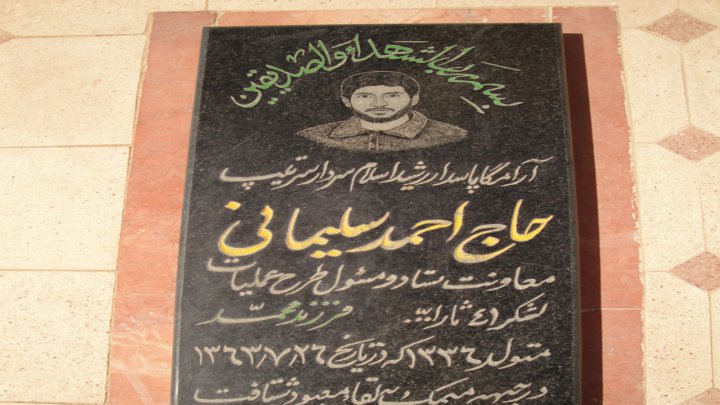 بسم رب الشهداء و الصدیقین
آرامگاه پاسدار رشید اسلام سردار سرتیپ
حاج احمد سلیمانی
معاونت ستاد و مسئول طرح عملیات
لشکر ٤١ ثارالله فرزند محمد
متولد ١٣٣٦ که در تاریخ ١٣٦٣/٧/٢٦
در جبهه میمک به لقاء معبود شتافت